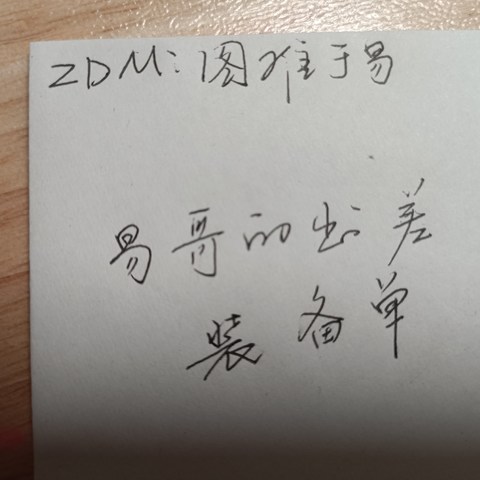 ZDM:图难于易
易哥的出差
装备单